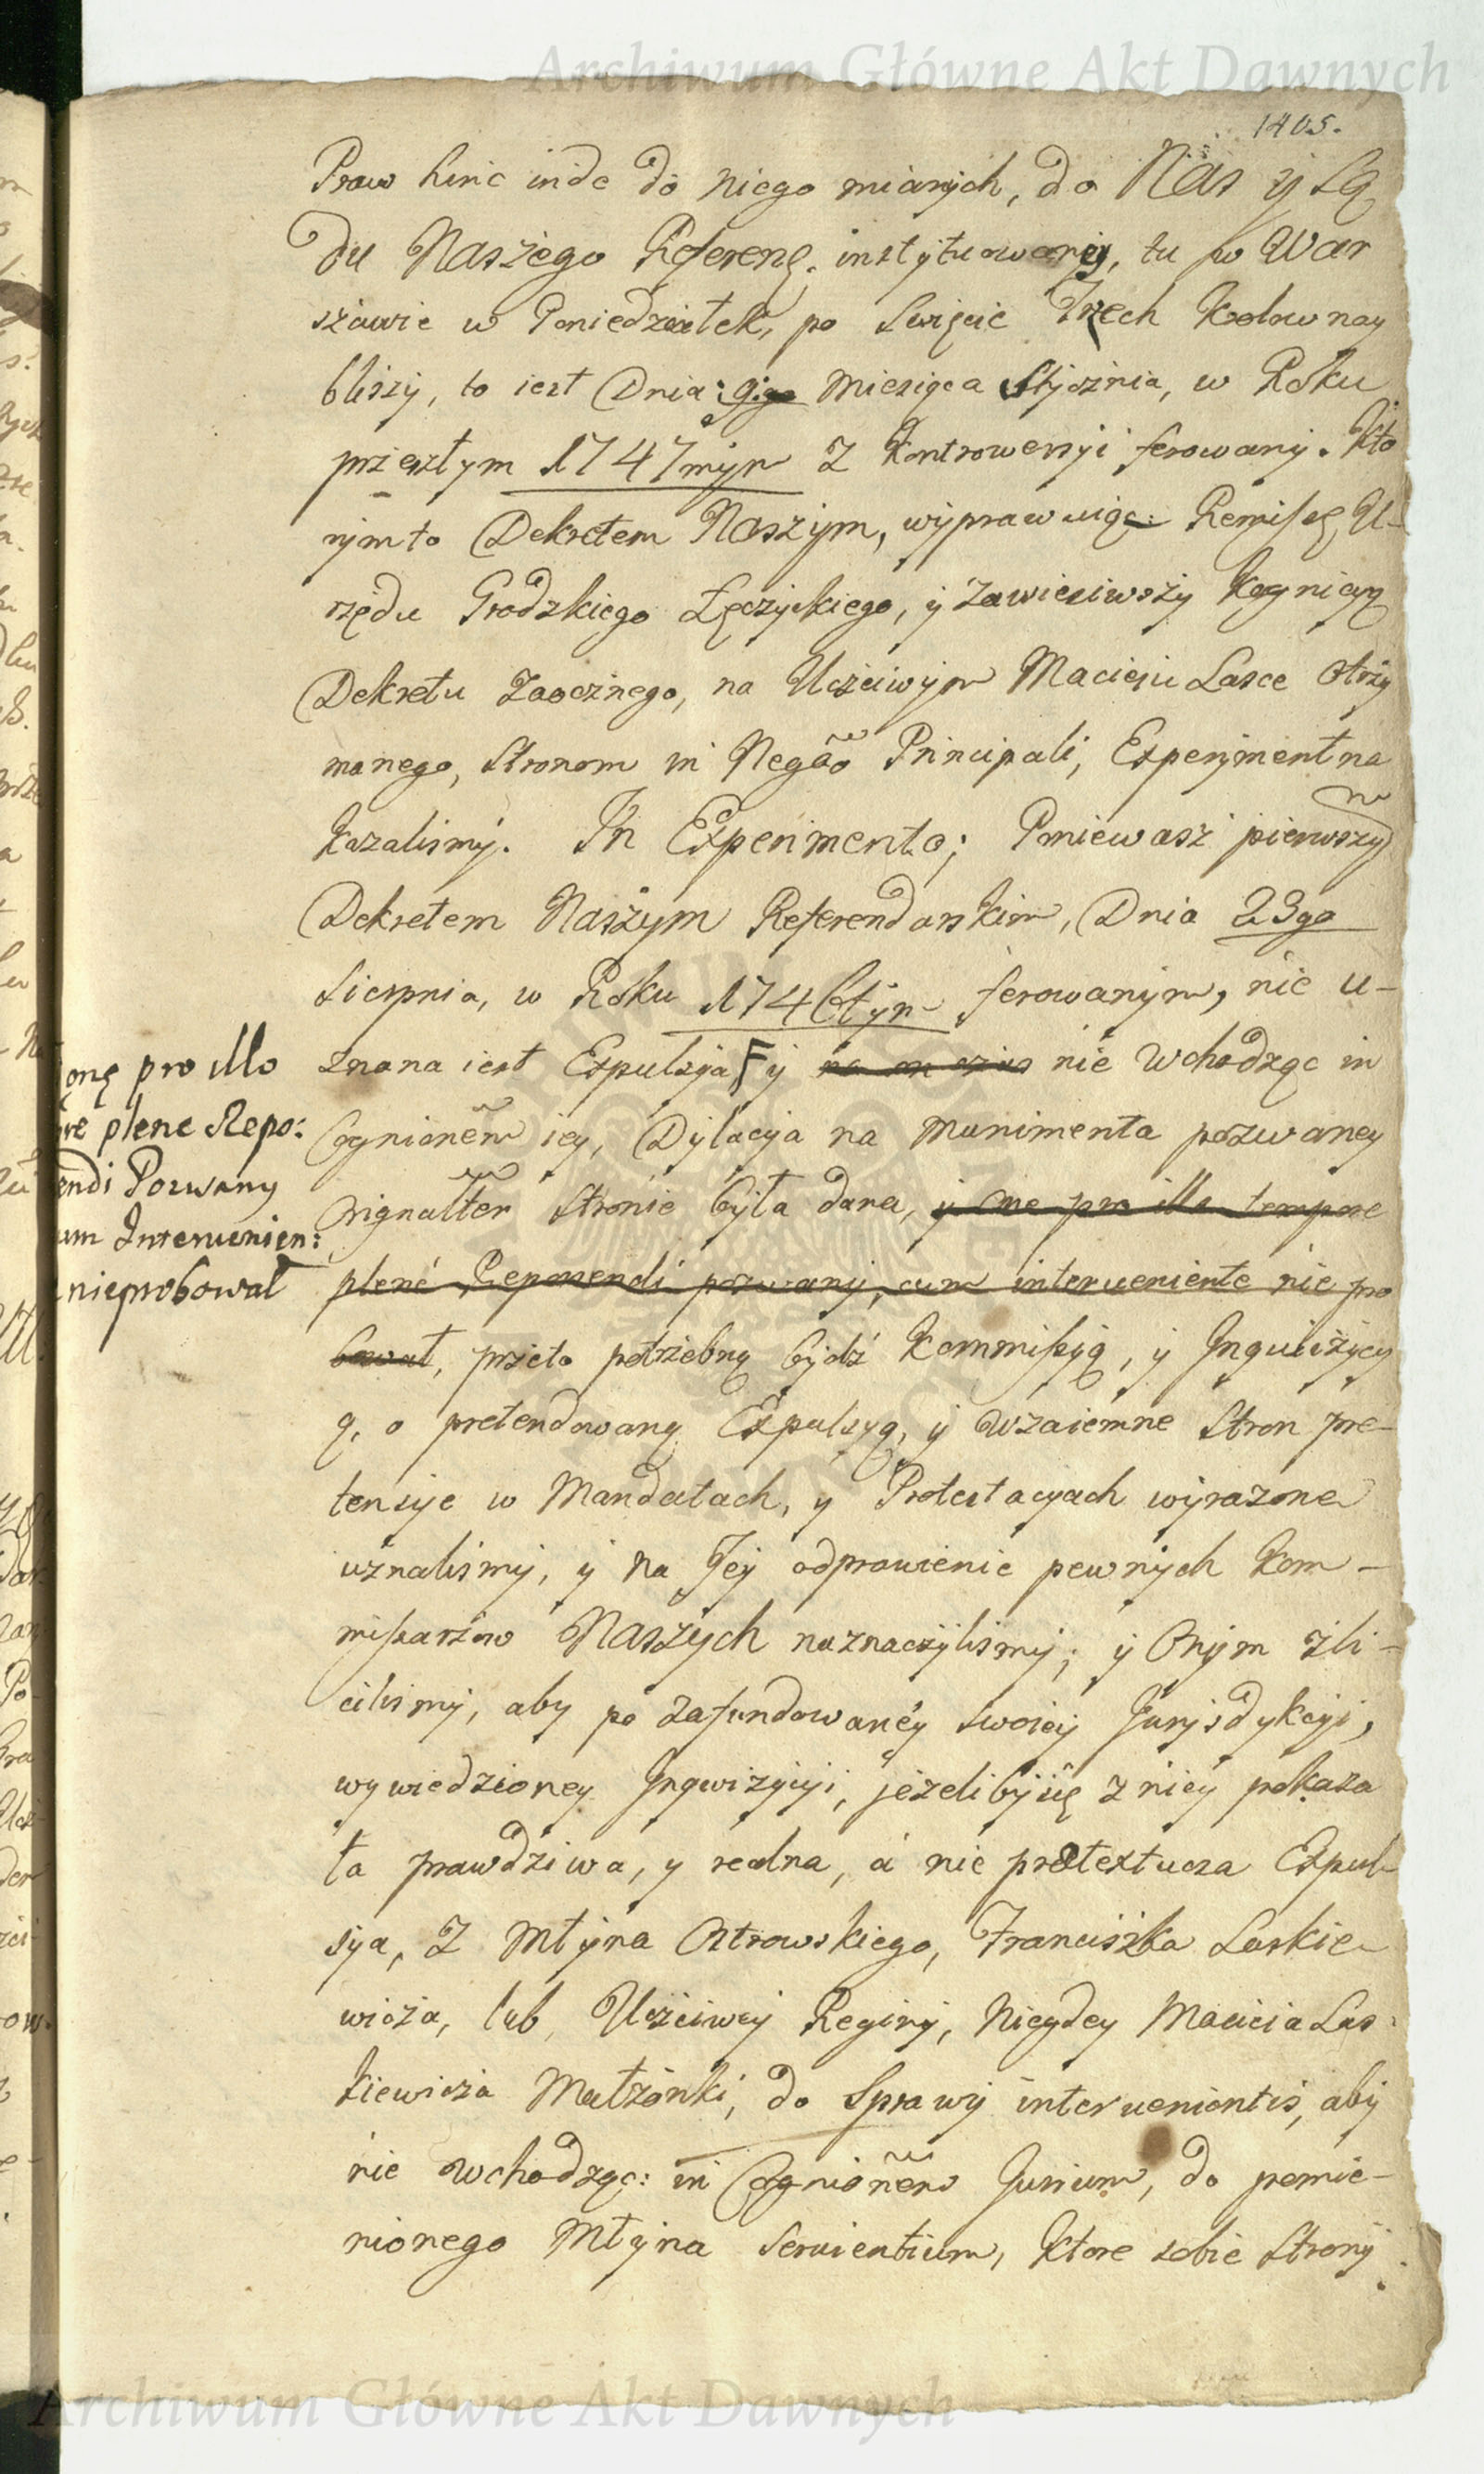 Archiwum Główne Akt Dawnych
1405.
Praw hinc inde do niego mianych, do Nas y Są
du Naszego Referenc. instytuowaney, tu w War
szawie w Poniedziałek, po Swięcie Trzech Krolow nay
bliszy, to iest Dnia 9:go Miesiąca Stycznia, w Roku
przeszłym 1747mym z Kontrowersyi ferowany. Kto
rymto Dekretem Naszym, wyprawuiąc Remissę U-
rzędu Grodzkiego Łęczyckiego, y zawiesiwszy Kognicyą
Dekretu Zaocznego, na Uczciwym Macieiu Lasce otrzy
manego, Stronom in Negao Principali, Experyment na
kazalismy. In Experimento; Poniewasz pierwszym
Dekretem Naszym Referendarskim, Dnia 23go
Sierpnia, w Roku 1746tym ferowanym, nie u-
znana iest Expulsya F y nie wchodząc in
Cognionem iey, Dylacya na Munimenta pozwaney
Orignalter Stronie była dana, y one pro illo tempore
plené Reponendi pozwany, cum interueniente nie pro
bował, przeto potrzebną bydź Kommissyą, y Inquizycy
ą, o pretendowaną Expulsyą, y wzaiemne Stron pre-
tensye w Mandatach, y Protestacyach wyrazone
uznalismy, y na Jey odprawienie pewnych Kom-
missarzow Naszych naznaczylismy; y Onym zli-
cilismy, aby po zafundowaney swoiey Jurysdykcyi,
wywiedzioney Inqwizycyi, jeżeliby się z niey pokaza
ła prawdziwa, y realna, á nie protextucza Expul-
sya, z Młyna Ostrowskiego, Franciszka Laskie-
wicza, lub Uczciwey Reginy, Niegdey Macieia Las-
kiewicza Małżonki, do Sprawy interuenientis, aby
nie wchodząc: in Cognionem Jurium, do pomie-
nionego Młyna seruientium, Ktore sobie Strony
onę pro illo
re plene Repo:
endi Pozwany
um Interuenien:
nieprobował
Archiwum Główne Akt Dawnych